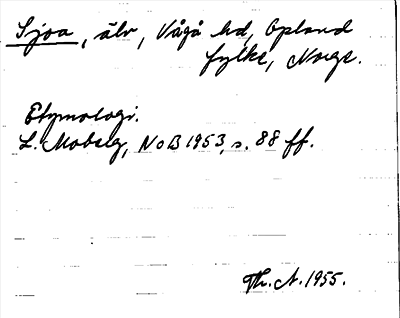 Sjoa, älv, Vågå hd, Opland
fylke, Norge.
Etymologi.
L. Moberg, NoB 1953, s. 88 ff.
Th. A. 1955.